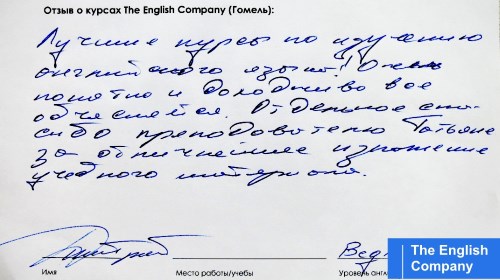 Отзыв о курсах The English Company (Гомель):
Лучшие курсы по изучению
английского языка! Очень
понятно и доходчиво все
объясняется. Отдельное спа-
сибо преподавателю Татьяне
за отличнейшее изложение
учебного материала.
Имя
Место работы/учебы
Уровень англ
The English
Company